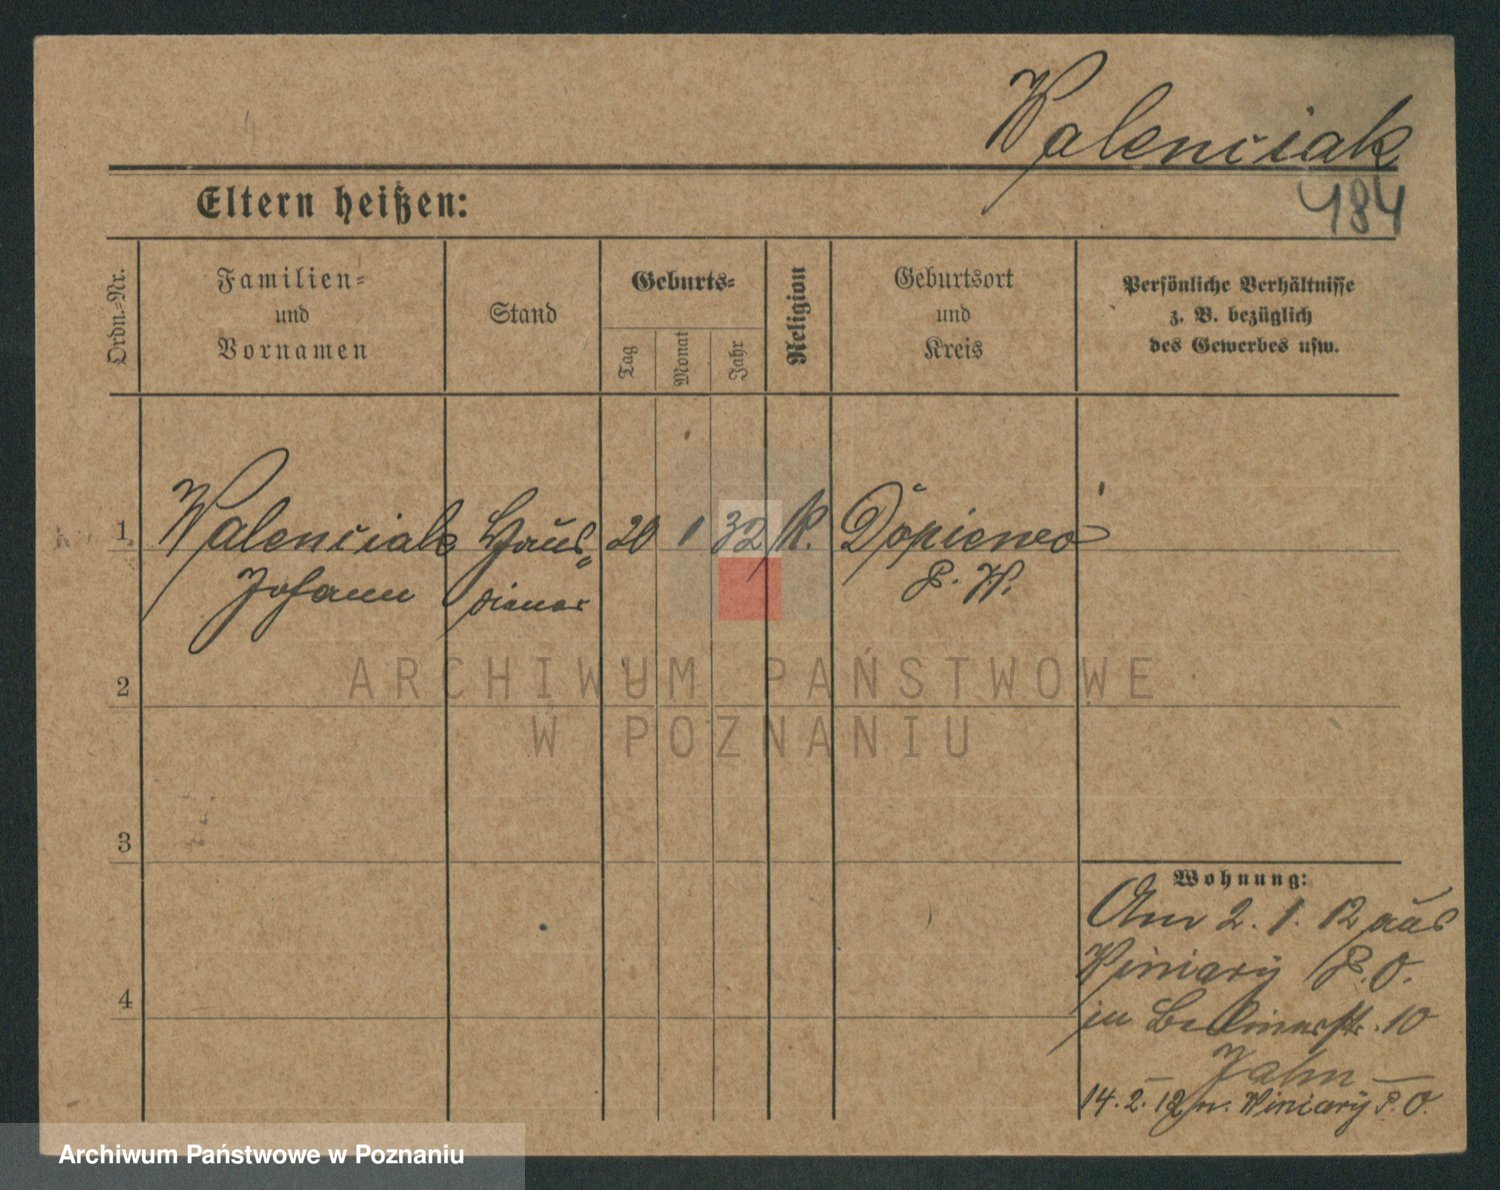 Walenciak
484
Eltern heißen:
Ordn.-Nr.
Familien-
und
Vornamen
Stand
Geburts-
Tag
Monat
Jahr
Religion
Geburtsort
und
Kreis
Persönliche Verhältnisse
z. B. bezüglich
des Gewerbes usw.
1 Walenciak Haus- 20 1 32 K. Dopiewo
Johann diener P. W.
ARCHIWUM PAŃSTWOWE
W POZNANIU
2
3
4
Wohnung:
Am 2. 1. 12 aus
Winiary P. O.
zu Berlinerstr. 10
Jahn
14. 2. 12 n. Winiary P. O.
Archiwum Państwowe w Poznaniu